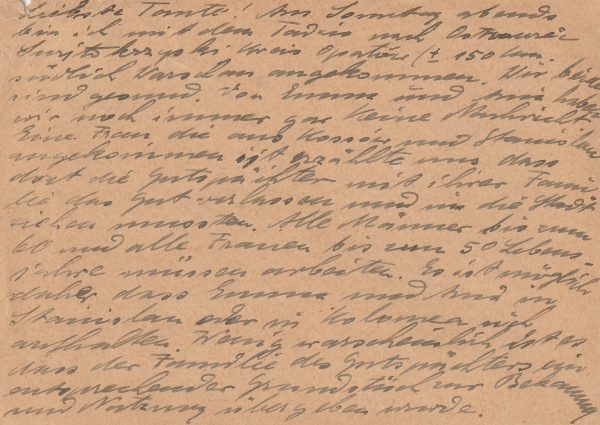 Liebste Tante! Am Sonntag abends
bin ich mit dem Tadzu nach Ostrowiec
Świętokrzyski Kreis Opatów (± 150 km.
südlich Warschau angekommen. Wir beide
sind gesund. Von Emma und haben
wir noch immer gar keine Nachricht
Eine Frau die aus Kossów und Stanislau
angekommen ist erzählte uns dass
dort die Gutspächter mit ihrer Fami
lie das Gut verlassen und in die Stadt
ziehen mussten. Alle Männer bis zum
60 und alle Frauen bis zum 50 Lebens
jahre müssen arbeiten. Es ist möglich
daher dass Emma und in
Stanislau oder in Kolomea sich
aufhalten. Wenig warscheinlich ist es
dass der Familie des Gutspächters ein
entsprechender Grundstück zur Bebauung
und Nutzung übergeben wurde.